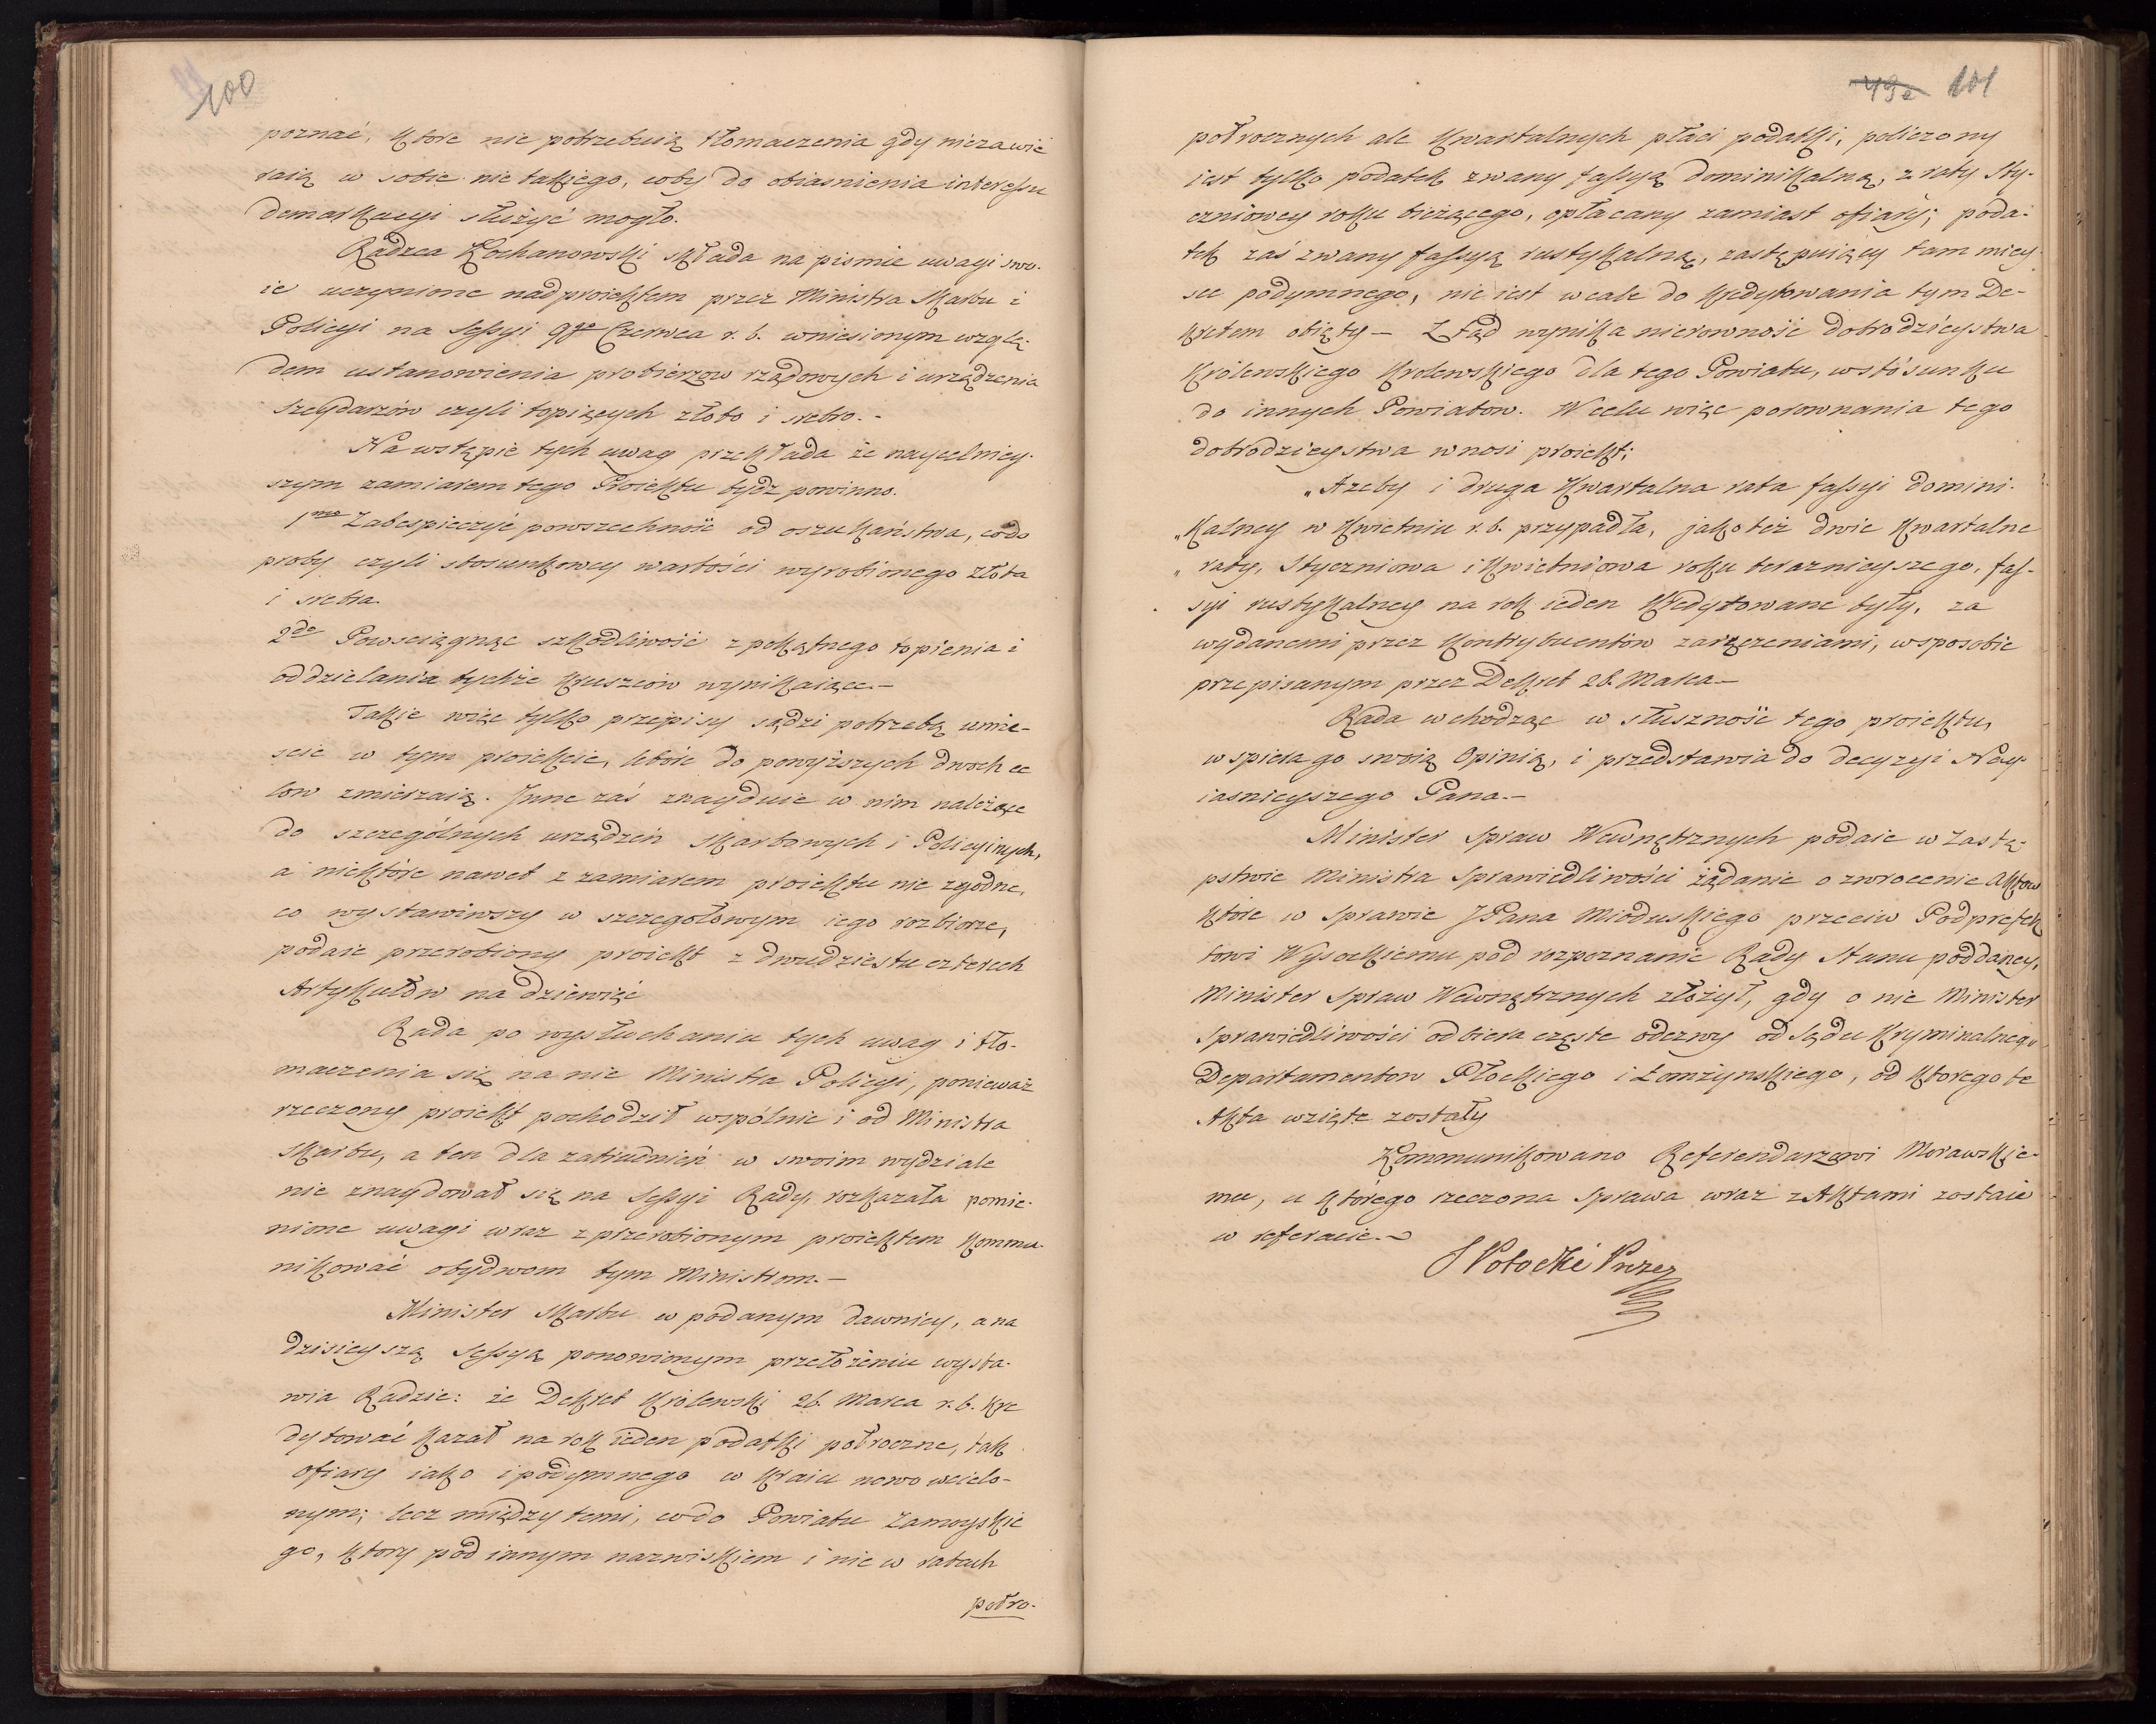 100
poznać, które nie potrzebuią tłomaczenia gdy niezawie
raią w sobie nic takiego, coby do obiasnienia interessu
demarkacyi służyć mogło.
Radzca Kochanowski składa na pismie uwagi swo-
ie uczynione nad proiektem przez Ministra Skarbu i
Policyi na Sessyi 9go Czerwca r. b. wniesionym wzglę-
dem ustanowienia probierzow rządowych i urządzenia
szeydarzów czyli topiących złoto i srebro.-
Na wstępie tych uwag przekłada że naycelniey-
szym zamiarem tego Proiektu bydz powinno.
1mo Zabespieczyć powszechność od oszukaństwa, codo
proby czyli stosunkowey wartości wyrobionego złota
i srebra.
2do Powsciągnąc szkodliwość z pokątnego topienia i
oddzielania tychże kruszców wynikaiące.-
Takie więc tylko przepisy sądzi potrzebą umie-
scic w tym proiekcie, które do powyższych dwoch ce
low zmierzaią. Inne zaś znayduie w nim należące
do szczególnych urządzeń Skarbowych i Policyinych,
a niektóre nawet z zamiarem proiektu nie zgodne,
co wystawiwszy w szczegołowym iego rozbiorze,
podaie przerobiony proiekt z dwudziestu czterech
Artykułów na dziewięć
Rada po wysłuchaniu tych uwag i tło-
maczenia się na nie Ministra Policyi, ponieważ
rzeczony proiekt pochodził wspólnie i od Ministra
Skarbu, a ten dla zatrudnień w swoim wydziale
nie znaydował się na Sessyi Rady, rozkazała pomie-
nione uwagi wraz z przerobionym proiektem kommu-
nikować obydwom tym Ministrom.-
Minister Skarbu w podanym dawniey, a na
dzisieyszą Sessyą ponowionym przełożeniu wysta-
wia Radzie: że Dekret Królewski 28. Marca r. b. kre
dytować kazał na rok ieden podatki połroczne, tak
ofiary iako i podymnego w kraiu nowo wcielo-
nym; lecz między temi, co do Powiatu Zamoyskie
go, ktory pod innym nazwiskiem i nie w ratach
połro-
101
połrocznych ale kwartalnych płaci podatki, policzony
iest tylko podatek zwany fassyą dominikalną, z raty Sty-
czniowey roku bieżącego, opłacany zamiast ofiary; poda-
tek zaś zwany fassyą rustykalną, zastępuiący tam miey-
sce podymnego, nie iest wcale do kredytowania tym De-
kretem obięty - Ztąd wynika nierowność dobrodzieystwa
Królewskiego Krolewskiego dla tego Powiatu, wstósunku
do innych Powiatow. W celu więc porownania tego
dobrodzieystwa wnosi proiekt;
"Azeby i druga kwartalna rata fassyi domini-
"kalney w Kwietniu r. b. przypadła, jako też dwie kwartalne
" raty, Styczniowa i Kwietniowa roku teraznieyszego, fas-
syi rustykalney na rok ieden kredytowane były, za
wydanemi przez kontrybuentów zaręczeniami, w sposobie
przepisanym przez Dekret 28. Marca.-
Rada wchodząc w słuszność tego proiektu,
wspiera go swoią Opinią, i przedstawia do decyzyi Nay-
iasnieyszego Pana.-
Minister Spraw Wewnętrznych podaie w Zastę-
pstwie Ministra Sprawiedliwości żądanie o zwrocenie Aktow
które w Sprawie JPana Mioduskiego przeciw Podprefek
towi Wysockiemu pod rozpoznanie Rady Stanu poddaney,
Minister Spraw Wewnętrznych złożył, gdy o nie Minister
Sprawiedliwości odbiera częste odezwy od Sądu Kryminalnego
Departamentow Płockiego i Łomżynskiego, od ktorego te
Akta wzięte zostały
Kommunikowano Referendarzowi Morawskie-
mu, u którego rzeczona Sprawa wraz z Aktami zostaie
w referacie.-
S Potocki Prezes